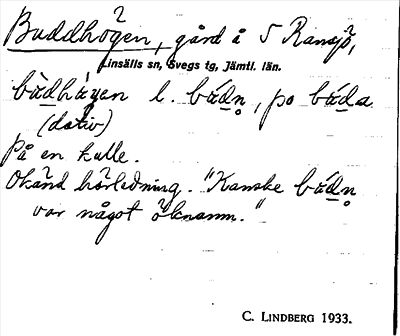 Buddhögen, gård å S Ransjö,
Linsälls sn, Svegs tg, Jämtl. län.
bàdhá̀γen l. bádn̥, po báda
(dativ)
På en kulle.
Okänd härledning. "Kanske bádn̥
var något öknamn."
C. LINDBERG 1933.